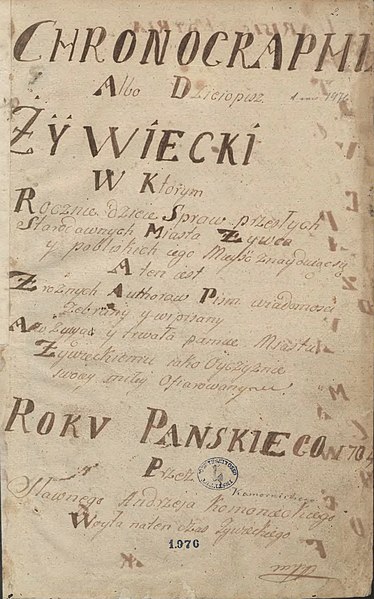 CHRONOGRAPHI
Albo Dzieiopisz
ŻYWIECKI
W Ktorym
Rocznie dzieie Spraw przeszłych
Starodawnych Miasta Zywca
y pobliskich iego Mieysc znayduiący
A ten iest
Z roznych Authorow Pism wiadomosci
Zebrany y wpisany
y trwałą pamiec Miastu
Zywieckiemu iako Oyczyznie
swoiey miłey Ofiarowany
ROKU PANSKIEGO 1704
Przez
Sławnego Andrzeia Komonieckiego
Woyta naten czas Zywieckiego
1976